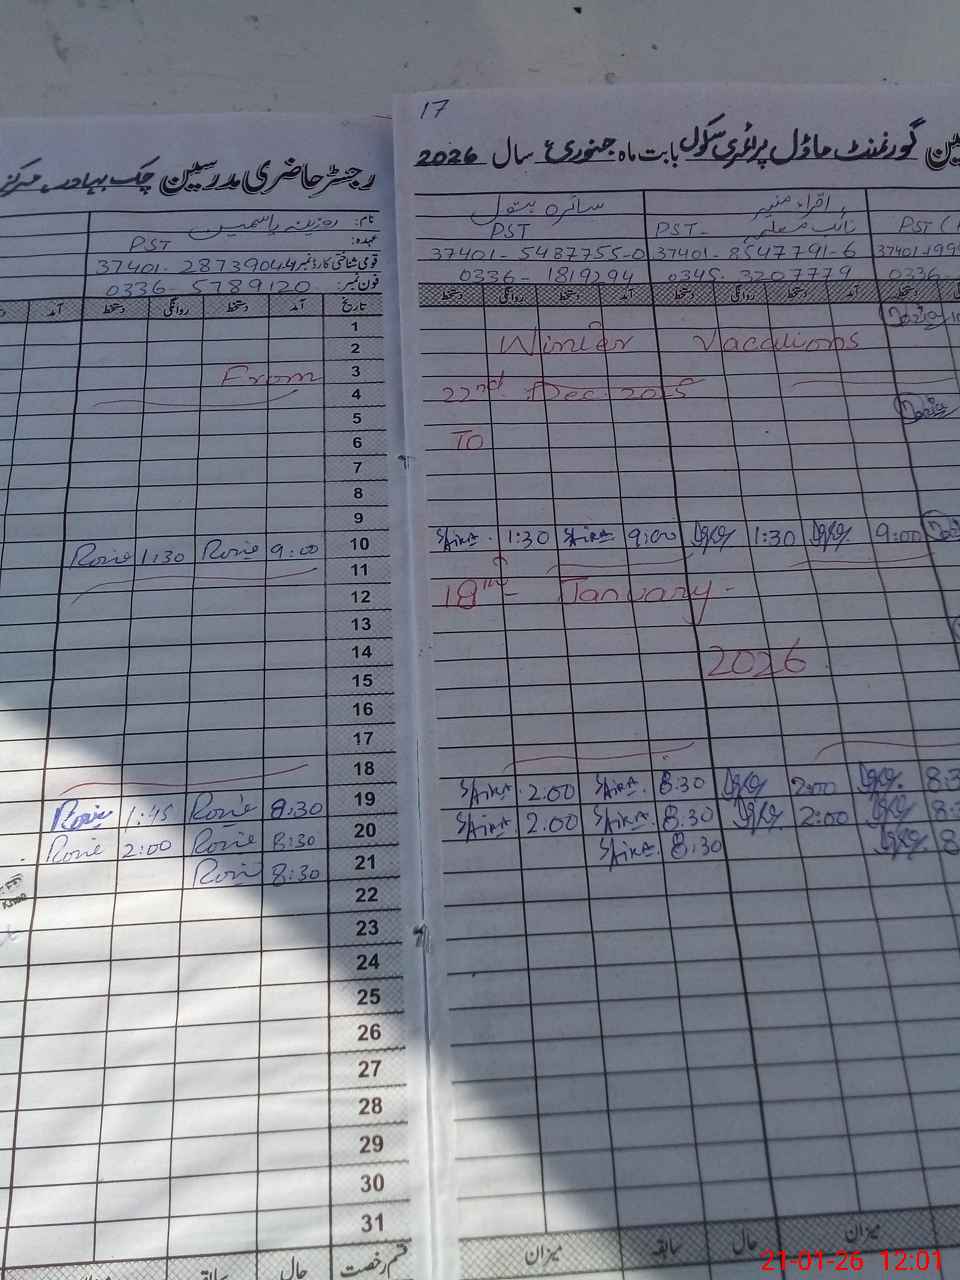 17
گورنمنٹ ماڈل پرائمری سکول بابت ماہ جنوری سال 2026
رجسٹر حاضری مدرسین چک بہادر مرکز
نام: روزینہ یاسمین
عہدہ: PST
قومی شناختی کارڈ نمبر 37401-2873904-4
فون نمبر: 0336-5789120
تاریخ آمد دستخط روانگی دستخط آمد
سائرہ بتول
PST
37401-5487755-0
0336-1819294
اقراء منیر
PST- نائب معلمہ
37401-8547791-6
0345-3207779
PST
37401-
0336-
آمد دستخط روانگی دستخط آمد دستخط روانگی دستخط
1
2 Winter Vacations
3 From
4 22nd Dec 2025
5
6 To
7
8
9
10 9:00 Rozie 1:30 Rozie 9:00 Saira 1:30 Saira 9:00 1:30
11
12 18th January-
13
14 2026
15
16
17
18
19 8:30 Rozie 1:45 Rozie 8:30 Saira 2:00 Saira 2:00
20 8:30 Rozie 2:00 Rozie 8:30 Saira 2:00 Saira 2:00
21 8:30 Rozie 8:30 Saira
22
23
24
25
26
27
28
29
30
31
قسم رخصت حال سابقہ میزان
میزان حال سابقہ میزان
21-01-26 12:01